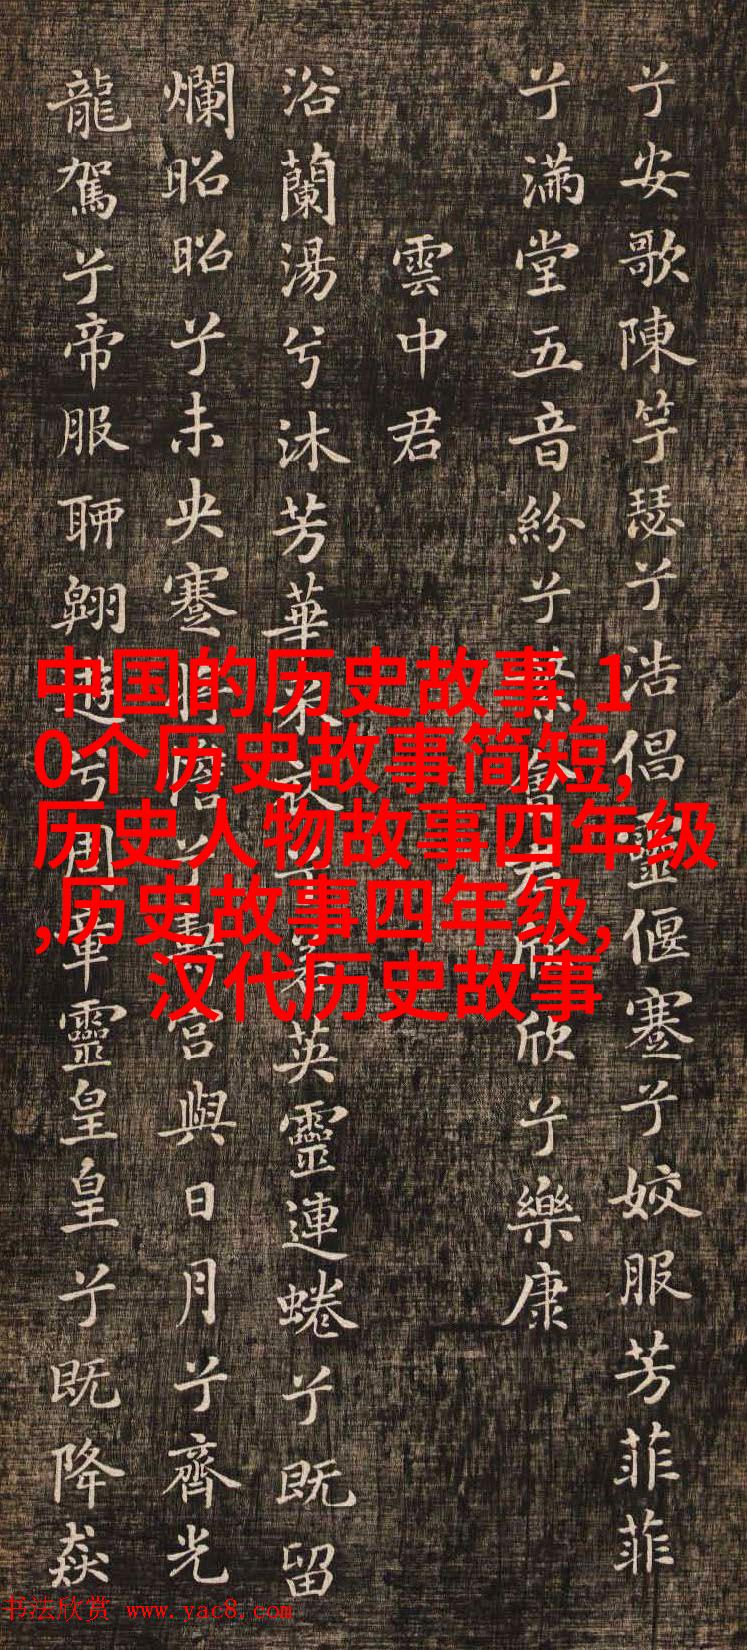 兮安歌陳竽瑟兮浩倡靈偃蹇兮姣服芳菲菲
兮滿堂五音紛兮繁會君欣欣兮樂康
雲中君
浴蘭湯兮沐芳華采衣兮若英靈連蜷兮既留
爛昭昭兮未央蹇將憺兮壽宮與日月兮齊光
龍駕兮帝服聊翱遊兮周章靈皇皇兮既降猋
中国的历史故事,1
0个历史故事简短,
历史人物故事四年级
,历史故事四年级,
汉代历史故事
书法欣赏 www.yac8.com